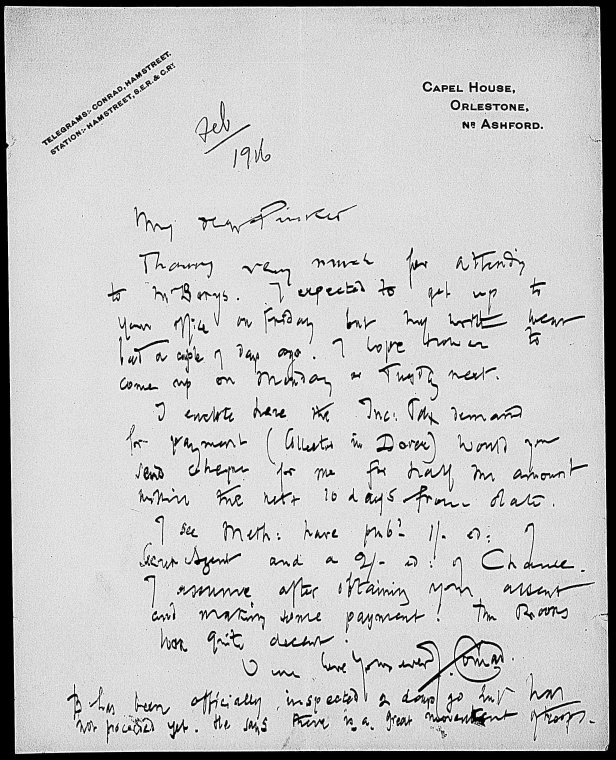 TELEGRAMS:- CONRAD, HAMSTREET.
STATION:- HAMSTREET, S.E.R. & C.RY
CAPEL HOUSE,
ORLESTONE,
NR ASHFORD.
Feb
1916
My dear Pinker
Thanks very much for attending
to Mr Borys. I expected to get up to
your office on Friday but my
but a couple of days ago. I hope however to
come up on Monday or Tuesday next.
I enclose here the Inc: Tax demand
for payment (Collector in Dover) Would you
send cheque for me for half the amount
within the next 10 days from date.
I see Meth: have pubd 1/- ed: of
Secret Agent and a 2/- ed: of Chance.
I assume after obtaining your assent
and making some payment! The Books
look quite decent.
Yours ever J. Conrad.
B has been officially inspected 2 days ago but has
not proceeded yet. He says there is a great movement of troops.